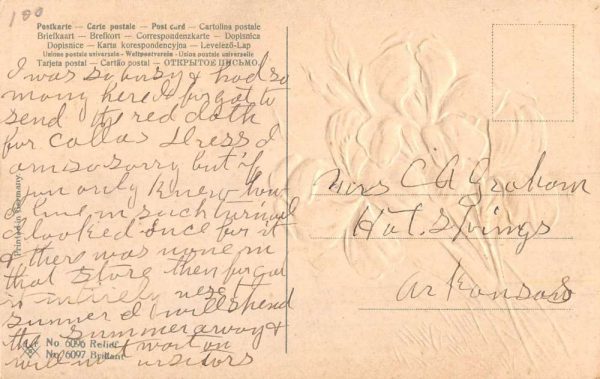 100
Postkarte — Carte postale — Post card — Cartolina postale
Briefkaart — Brefkort — Correspondenzkarte — Dopisnica
Dopisnice — Karta korespondencyjna — Levelező-Lap
Unione postale universale — Weltpostverein — Union postale universelle
Tarjeta postal — Cartão postal — ОТКРЫТОЕ ПИСЬМО.
I was so busy & had so
many here I forgot to
send the red cloth
for Collas dress I
am so sorry but if
you only knew how
I live in such turmoil
I looked once for it
& there was none in
that store then forgot
it entirely next
summer I will spend
the summer away &
will not wait on
visitors
Mrs C A Graham
Hot. Springs
Arkansas
Printed in Germany
No 6096 Relief
No 6097 Brillant